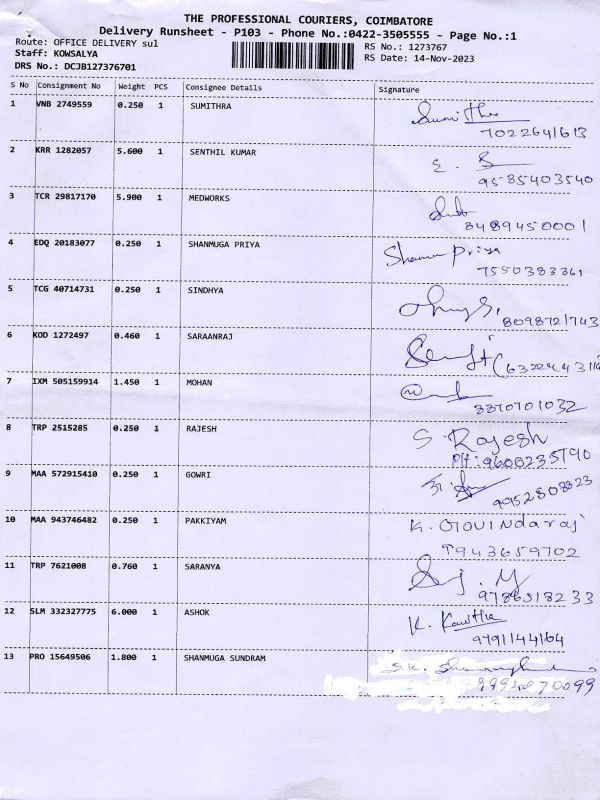 THE PROFESSIONAL COURIERS, COIMBATORE
Delivery Runsheet - P103 - Phone No.:0422-3505555 - Page No.:1
Route: OFFICE DELIVERY sul RS No.: 1273767
Staff: KOWSALYA RS Date: 14-Nov-2023
DRS No.: DCJB127376701
S No Consignment No Weight PCS Consignee Details Signature
1 VNB 2749559 0.250 1 SUMITHRA
7022641613
2 KRR 1282057 5.600 1 SENTHIL KUMAR
9585403540
3 TCR 29817170 5.900 1 MEDWORKS
8489450001
4 EDQ 20183077 0.250 1 SHANMUGA PRIYA
7550383861
5 TCG 40714731 0.250 1 SINDHYA
8098721743
6 KOD 1272497 0.460 1 SARAANRAJ
7 IXM 505159914 1.450 1 MOHAN
8870701032
8 TRP 2515285 0.250 1 RAJESH S. Rajesh
9 MAA 572915410 0.250 1 GOWRI
9952808323
10 MAA 943746482 0.250 1 PAKKIYAM K. GOVINDaraj
9943659702
11 TRP 7621008 0.760 1 SARANYA
9786518233
12 SLM 332327775 6.000 1 ASHOK K. Kavitha
9791144164
13 PRO 15649506 1.800 1 SHANMUGA SUNDRAM